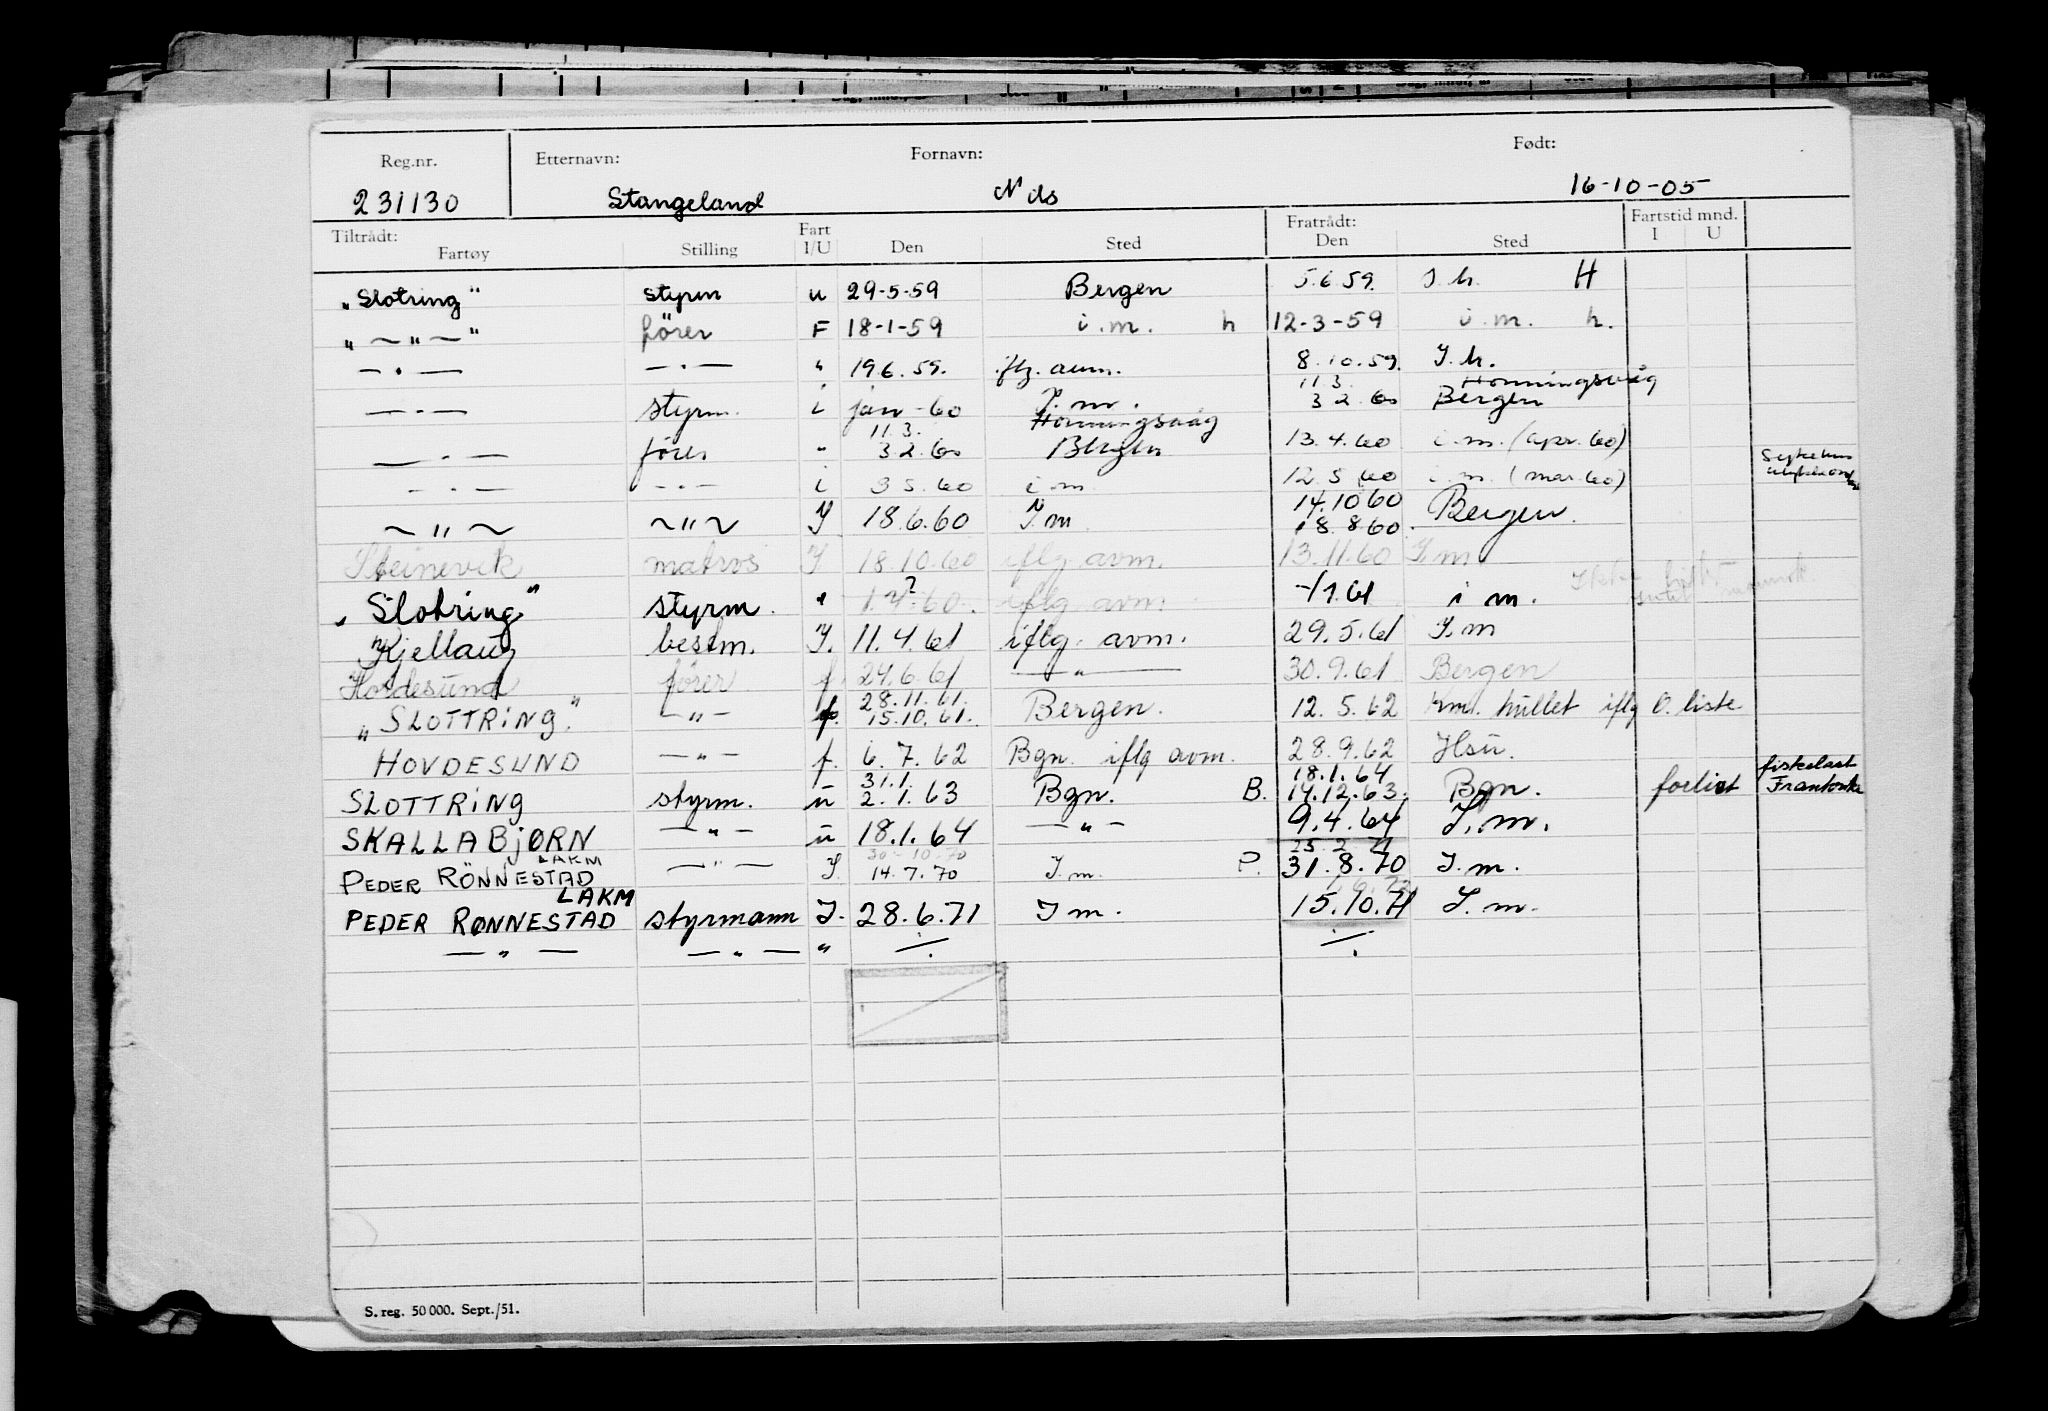 Reg.nr. Etternavn: Fornavn: Født:
231130 Stangeland Nils 16-10-05
Tiltrådt: Fratrådt: Fartstid mnd.
Fartøy Stilling Fart I/U Den Sted Den Sted I U
"Slotring" styrm u 29-5-59 Bergen 5.6.59. I.h. H
" — " — " förer F 18-1-59 i.m. h 12-3-59 i.m. h.
— " — — " — " 19.6.59. iflg. avm. 8.10.59. I.h.
11.3. Honningsvåg
— " — styrm. i jan-60 I.m. 3 2 60 Bergen
11.3. Honningsvåg
— " — fører " 3.2.60 Bergen 13.4.60 i.m. (apr. 60)
— " — — " — i 3 5.60 i m 12.5 60 i.m. (mar. 60)
14.10 60
~ " ~ ~ " ~ I 18.6.60 I.m 18.8 60. Bergen.
Steinevik matros I 18.10.60 iflg avm. 13.11.60 I.m
"Slotring" styrm. " 1.?.60. iflg avm. -/1.61 i m.
"Kjellaug bestm. I. 11.4.61 iflg. avm. 29.5.61 I.m
Hordesund fører f. 24.6.61 — " — 30.9.61 Bergen
28.11.61.
"SLOTTRING." — " — f. 15.10.61. Bergen. 12.5.62 iflg O. liste
HOVDESUND — " — f. 6.7.62 Bgn. iflg avm. 28.9.62
31.1. 18.1.64 fiskelast
SLOTTRING styrm. u 2.1.63 Bgn. B. 14.12.63. Bgn. forlist
SKALLABJØRN — " — u 18.1.64 — " — 9.4.64 I.m.
LAKM 30-10-70 25.2.71
PEDER RÖNNESTAD — " — I. 14.7.70 I.m. P. 31.8.70 I.m.
LAKM
PEDER RØNNESTAD styrmann I. 28.6.71 I m. 15.10.71 I.m.
— " — — " — " ÷ ÷
S. reg. 50 000. Sept./51.